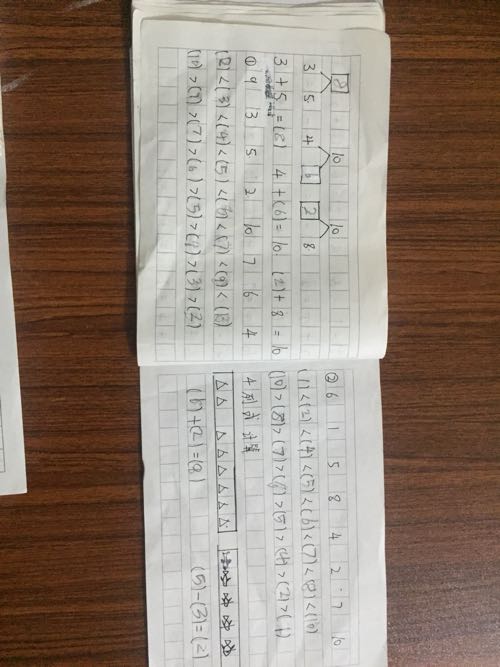 8 10 10
3 5 4 6 2 8
3+5=(8) 4+(6)=10 (2)+8=10
① 9 3 5 2 10 7 6 4
(2)<(3)<(4)<(5)<(6)<(7)<(9)<(10)
(10)>(9)>(7)>(6)>(5)>(4)>(3)>(2)
② 6 1 5 8 4 2 7 10
(1)<(2)<(4)<(5)<(6)<(7)<(8)<(10)
(10)>(8)>(7)>(6)>(5)>(4)>(2)>(1)
4 列式计算
(7)+(2)=(9) (5)-(3)=(2)